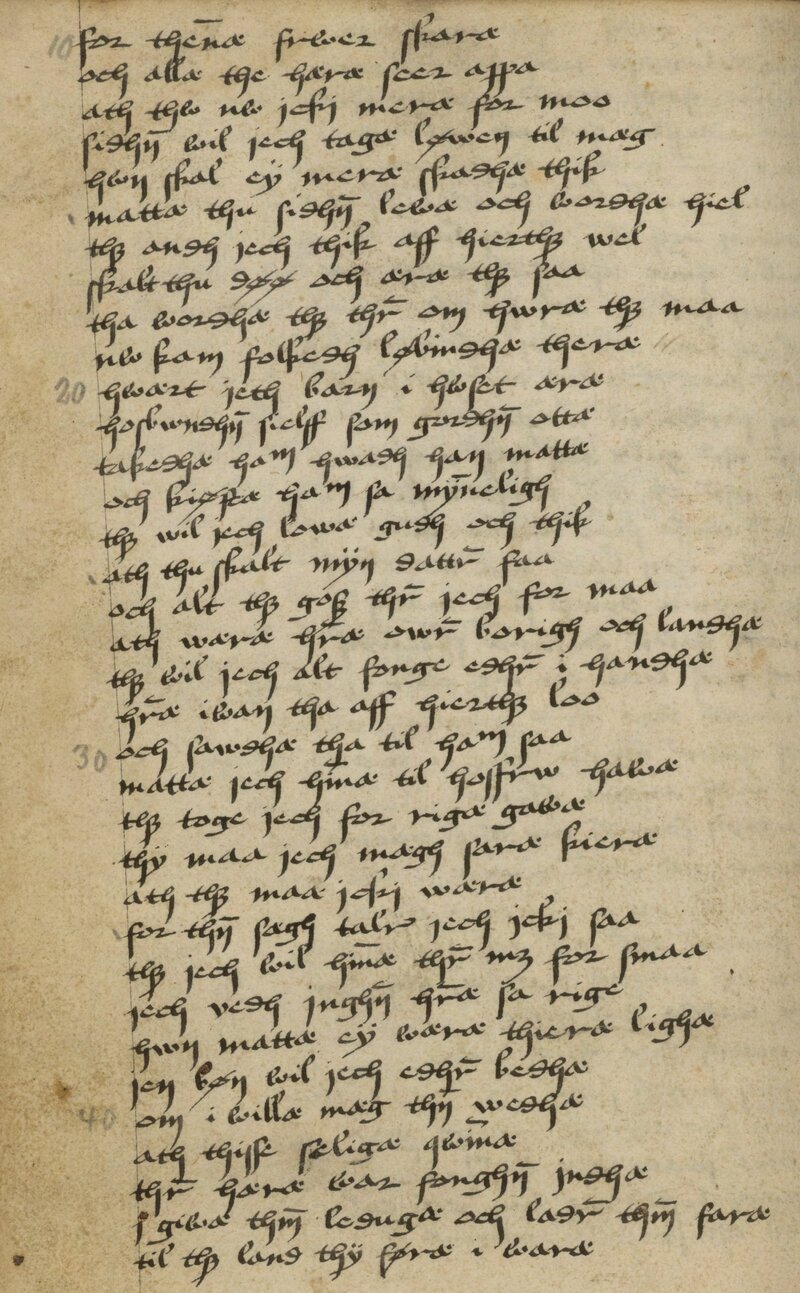 10 for then̄æ frwer skaræ
och allæ the hæræ seer appa
ath thw nw jckj meræ for moo
sidhn̄ wil jech tagæ løwen til mæg
hwn skal ey meræ skadhæ thik
mattæ thu sidhn̄ lewæ och wordhæ hiel
thꝫ andh jech thik aff hierthꝫ wel
skalt thu døø och æræ thꝫ saa
tha wordhæ thꝫ thr̄ om hwræ thꝫ maa
nw kam folkedh løbindhæ theræ
20 hwært jeth barn i hwset æræ
hosbwndhn̄ sielff som gordhn̄ ottæ
takedhæ ham hwadh han mattæ
och kiøstæ ham sa mỹneligh
thꝫ wil jech lowæ gudh och thik
ath thu skalt myn dattr̄ faa
och alt thꝫ gotꝫ thr̄ jech for maa
ath wæræ hr̄æ owr̄ borigh och landhæ
thꝫ wil jech alt fonge edhr̄ i handhæ
hr̄æ iwan tha aff hierthꝫ loo
30 och sawdhæ tha til ham saa
mattæ jech hm̄æ til hosfrw hawæ
thꝫ toge jech for rigæ gawæ
thy maa jech mægh saræ kieræ
ath thꝫ maa jckj wæræ
for thn̄ sagh talr jech jckj saa
thꝫ jech wil hm̄æ thr̄ mꝫ for smaa
jech vedh jnghn̄ hr̄æ sa rige
hwn mattæ ey wæræ thieræ lighæ
jen bøn wil jech edhr̄ bedhæ
40 om i willæ mæg thn̄ wedhæ
ath thisse seligæ qwin̄æ
thr̄ hæræ war fonghn̄ jndhæ
j giwæ thm̄ ledugæ och ladr̄ thm̄ faræ
til thꝫ land thy føræ i waræ